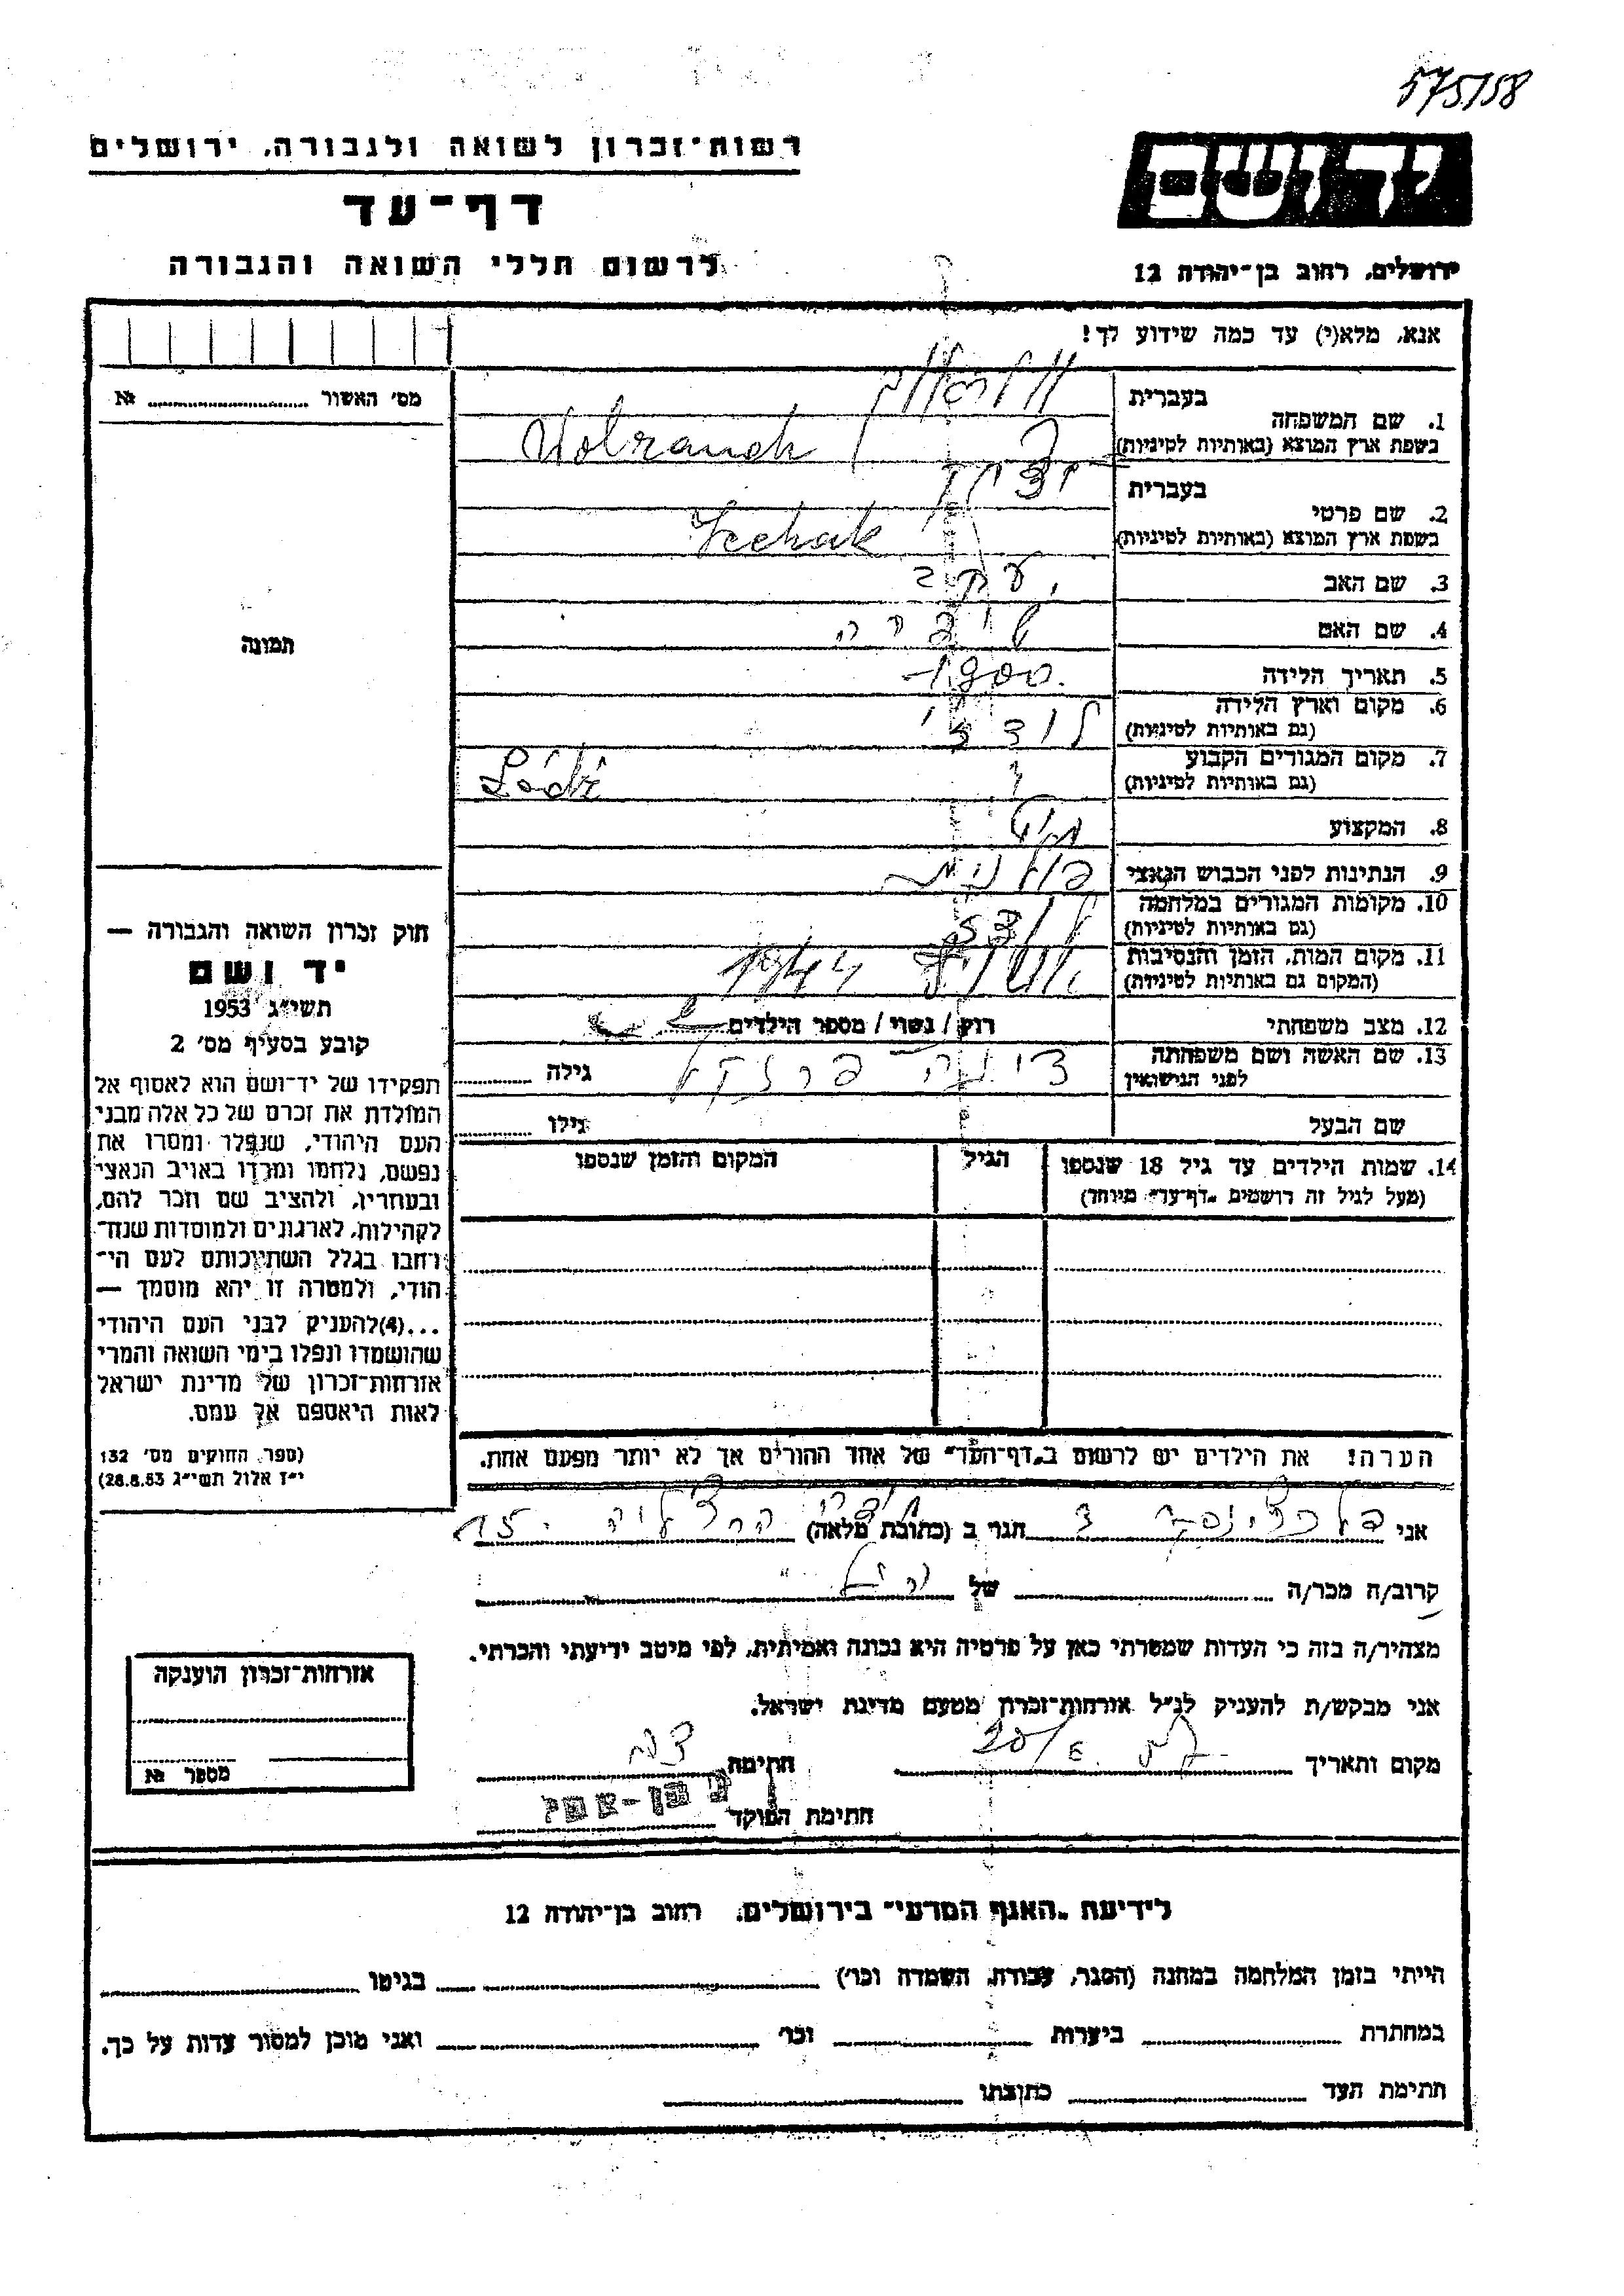 575/58
רשות־זכרון לשואה ולגבורה, ירושלים
דף־עד
לרשום חללי השואה והגבורה
ידושם
ירושלים, רחוב בן־יהודה 12
אנא, מלא(י) עד כמה שידוע לך!
מס׳ האשור №
תמונה
1. שם המשפחה
בעברית
בשפת ארץ המוצא (באותיות לטיניות) Wolrauch
2. שם פרטי
בעברית יצחק
בשפת ארץ המוצא (באותיות לטיניות) Icchak
3. שם האב יעקב
4. שם האם
5. תאריך הלידה 1900.
6. מקום וארץ הלידה
(גם באותיות לטיניות) לודז׳
7. מקום המגורים הקבוע
(גם באותיות לטיניות) Łódź
8. המקצוע
9. הנתינות לפני הכבוש הנאצי פולנית
10. מקומות המגורים במלחמה
(גם באותיות לטיניות) לודז
11. מקום המות, הזמן והנסיבות
(המקום גם באותיות לטיניות) 1944
12. מצב משפחתי רווק / נשוי / מספר הילדים
13. שם האשה ושם משפחתה
לפני הנישואין גילה
שם הבעל גילו
14. שמות הילדים עד גיל 18 שנספו
(מעל לגיל זה רושמים „דף־עד״ מיוחד)
הגיל
המקום והזמן שנספו
חוק זכרון השואה והגבורה —
יד ושם
תשי״ג 1953
קובע בסעיף מס׳ 2
תפקידו של יד־ושם הוא לאסוף אל
המולדת את זכרם של כל אלה מבני
העם היהודי, שנפלו ומסרו את
נפשם, נלחמו ומרדו באויב הנאצי
ובעוזריו, ולהציב שם וזכר להם,
לקהילות, לארגונים ולמוסדות שנח־
רחבו בגלל השתייכותם לעם הי־
הודי, ולמטרה זו יהא מוסמך —
...(4)להעניק לבני העם היהודי
שהושמדו ונפלו בימי השואה והמרי
אזרחות־זכרון של מדינת ישראל
לאות היאספם אל עמם.
(ספר החוקים מס׳ 132
י״ז אלול תשי״ג 28.8.53)
הערה! את הילדים יש לרשום ב„דף־העד״ של אחד ההורים אך לא יותר מפעם אחת.
אני הגר ב (כתובת מלאה) 15
קרוב/ה מכר/ה של
מצהיר/ה בזה כי העדות שמסרתי כאן על פרטיה היא נכונה ואמיתית, לפי מיטב ידיעתי והכרתי.
אני מבקש/ת להעניק לנ״ל אזרחות־זכרון מטעם מדינת ישראל.
מקום ותאריך חתימה
חתימת הפוקד
אזרחות־זכרון הוענקה
מספר №
לידיעת „האגף המדעי״ בירושלים, רחוב בן־יהודה 12
הייתי בזמן המלחמה במחנה (הסגר, עבודה, השמדה וכו׳) בגיטו
במחתרת ביערות וכו׳ ואני מוכן למסור עדות על כך.
חתימת העד כתובתו